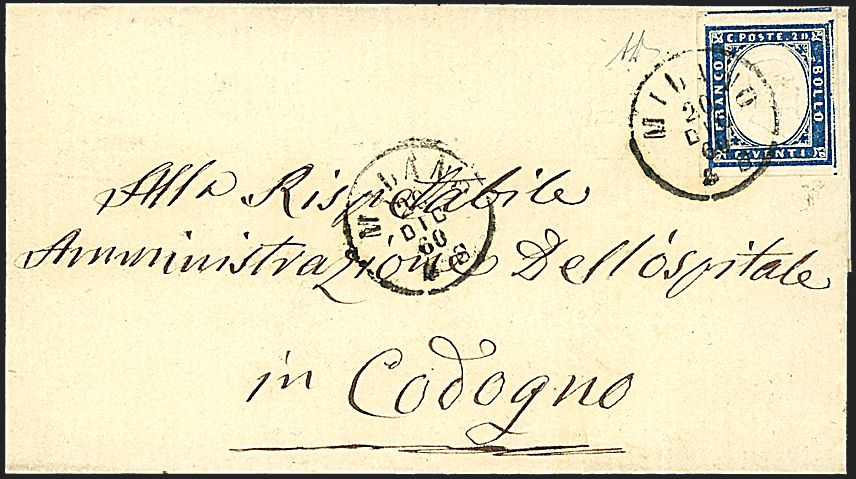 C. POSTE. 20
FRANCO
BOLLO
C. VENTI
MILANO
20
DIC
60
MILANO
20
DIC
60
Alla Rispettabile
Amministrazione Dell'Ospitale
in Codogno